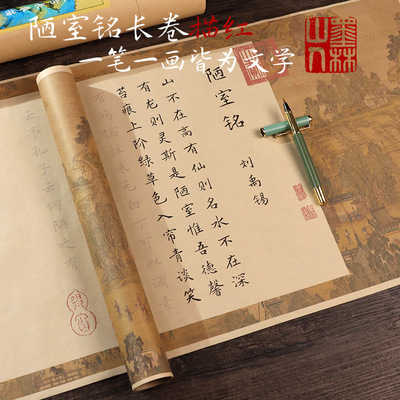 陋室铭长卷描红
一笔一画皆为文学
陋室铭
刘禹锡
山不在高有仙则名水不在深
有龙则灵斯是陋室惟吾德馨
苔痕上阶绿草色入帘青谈笑
有鸿儒往来无白丁可以调素
孔子云何陋之有